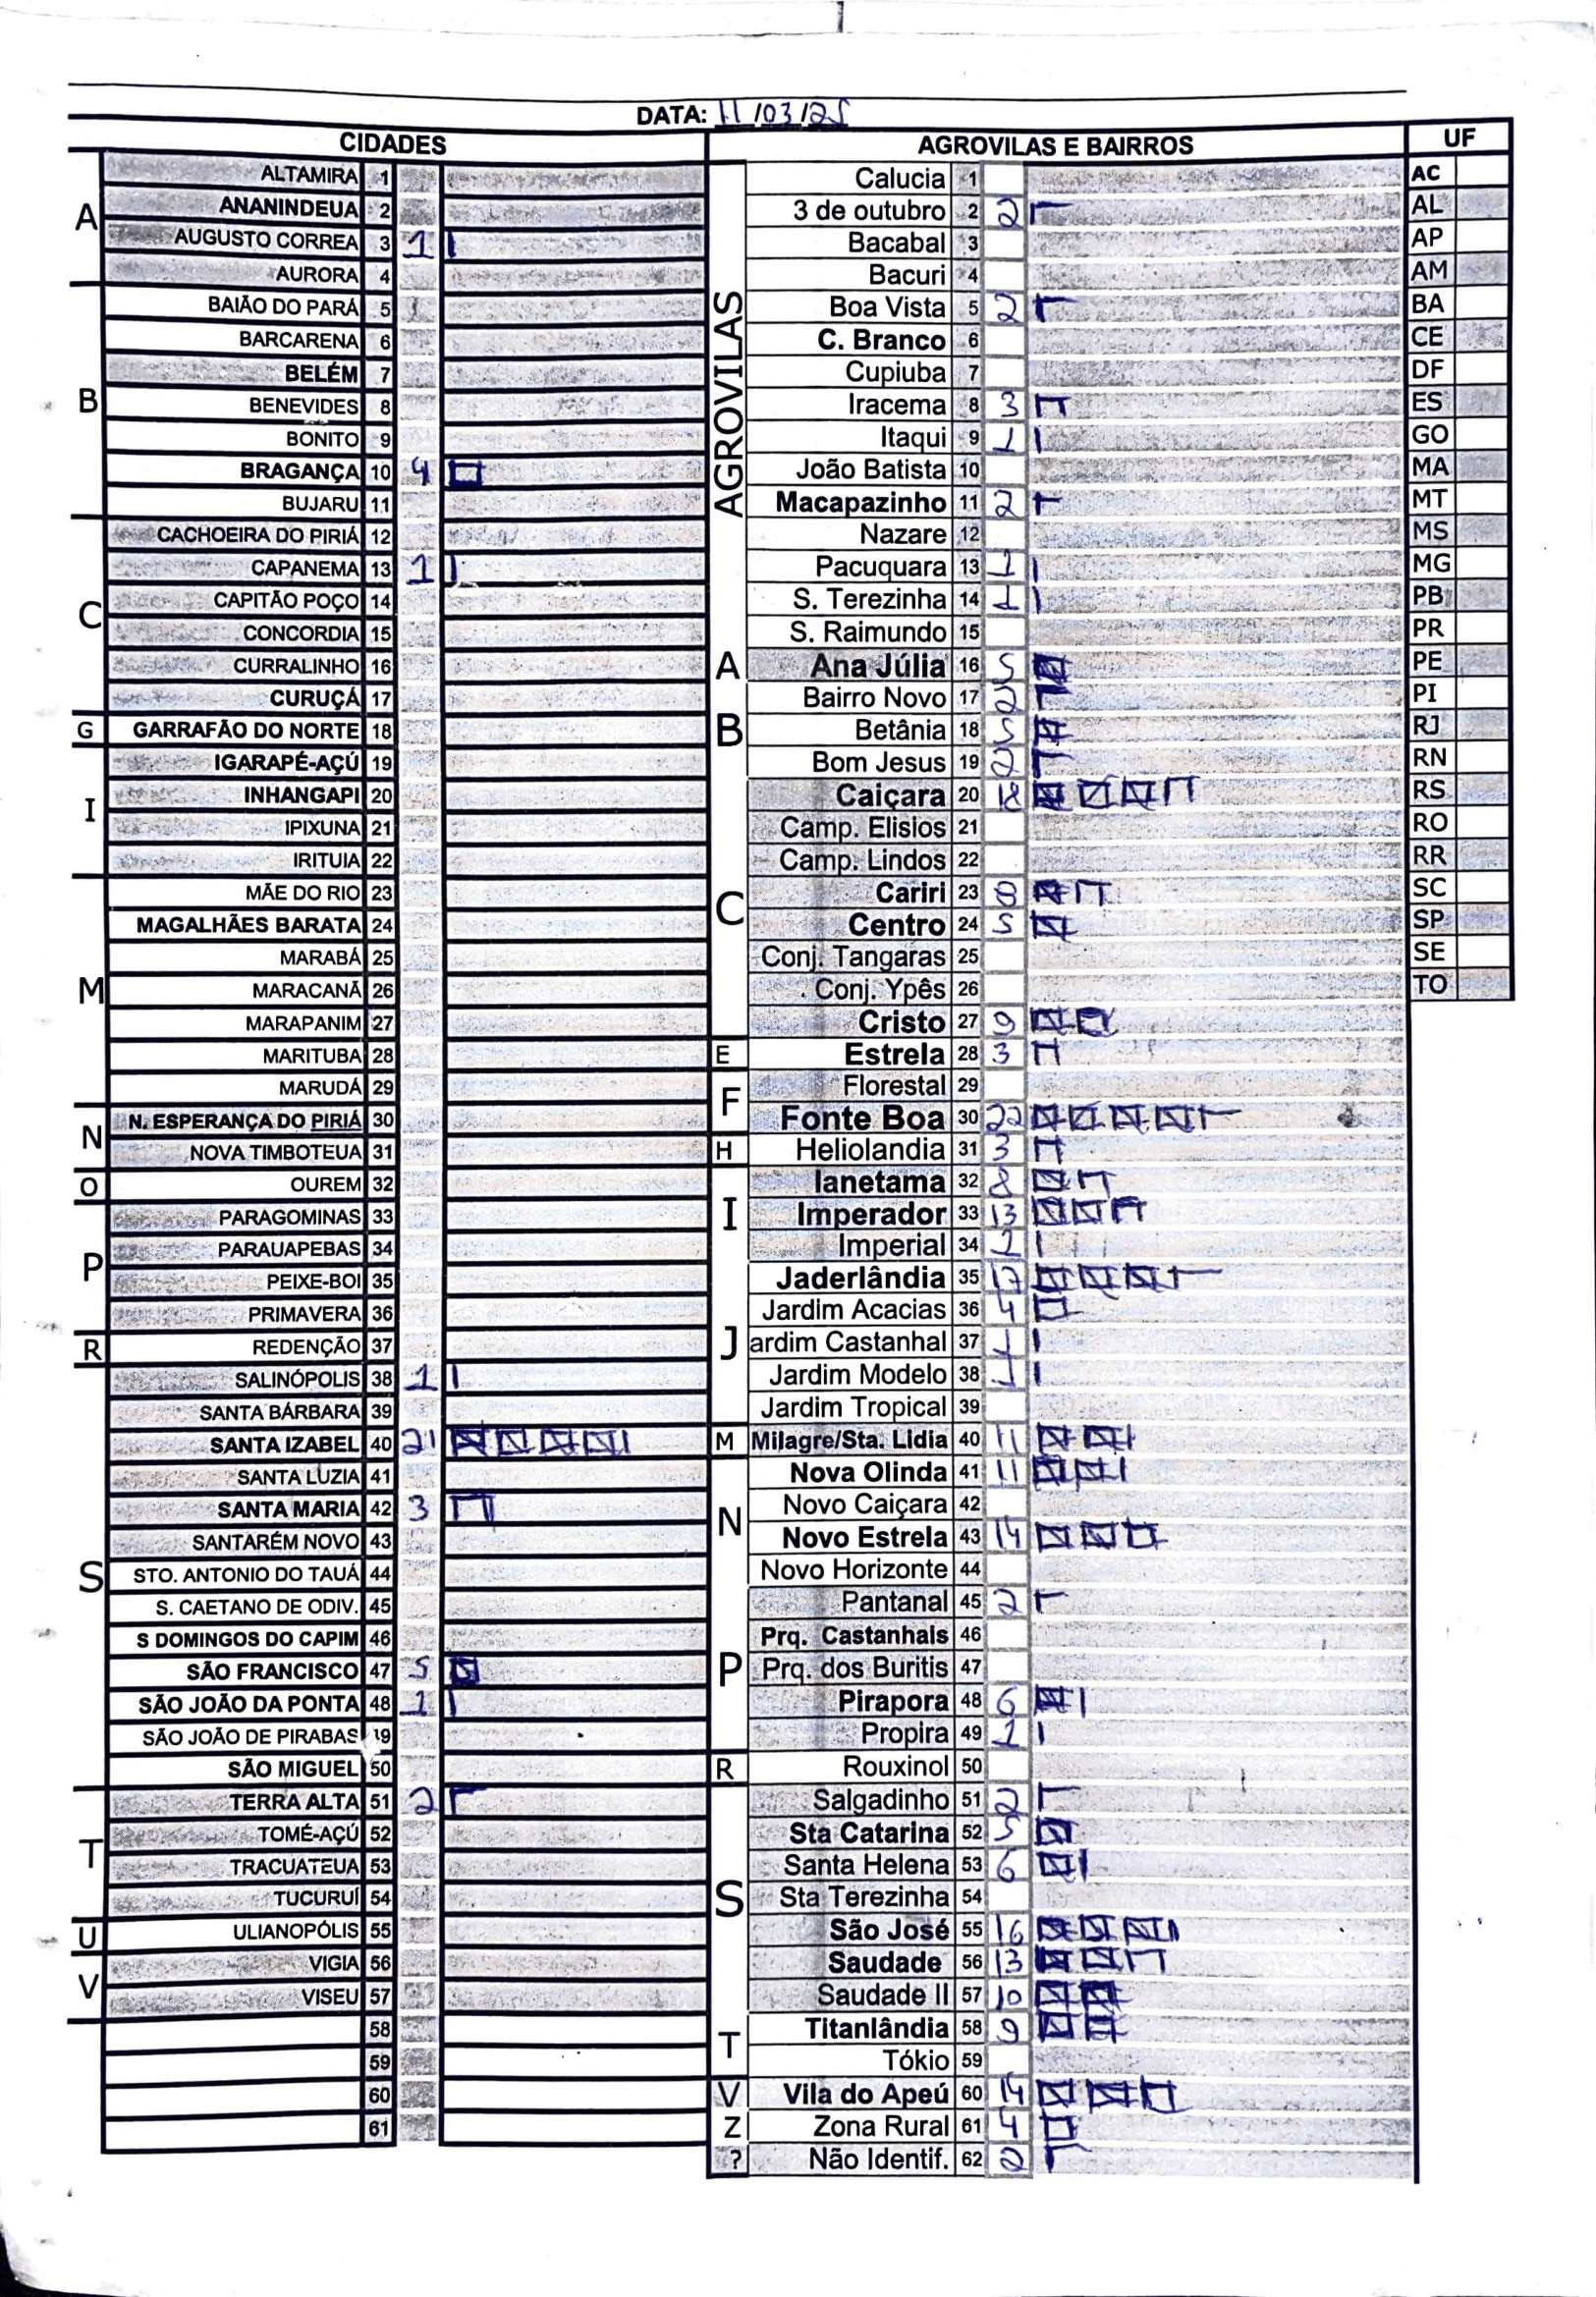 DATA: 11/03/25
CIDADES
A
ALTAMIRA 1
ANANINDEUA 2
AUGUSTO CORREA 3 1
AURORA 4
B
BAIÃO DO PARÁ 5
BARCARENA 6
BELÉM 7
BENEVIDES 8
BONITO 9
BRAGANÇA 10 4
BUJARU 11
C
CACHOEIRA DO PIRIÁ 12
CAPANEMA 13 1
CAPITÃO POÇO 14
CONCORDIA 15
CURRALINHO 16
CURUÇÁ 17
G
GARRAFÃO DO NORTE 18
I
IGARAPÉ-AÇÚ 19
INHANGAPI 20
IPIXUNA 21
IRITUIA 22
M
MÃE DO RIO 23
MAGALHÃES BARATA 24
MARABÁ 25
MARACANÃ 26
MARAPANIM 27
MARITUBA 28
MARUDÁ 29
N
N. ESPERANÇA DO PIRIÁ 30
NOVA TIMBOTEUA 31
O
OUREM 32
P
PARAGOMINAS 33
PARAUAPEBAS 34
PEIXE-BOI 35
PRIMAVERA 36
R
REDENÇÃO 37
S
SALINÓPOLIS 38 1
SANTA BÁRBARA 39
SANTA IZABEL 40 21
SANTA LUZIA 41
SANTA MARIA 42 3
SANTARÉM NOVO 43
STO. ANTONIO DO TAUÁ 44
S. CAETANO DE ODIV. 45
S DOMINGOS DO CAPIM 46
SÃO FRANCISCO 47 5
SÃO JOÃO DA PONTA 48 1
SÃO JOÃO DE PIRABAS 49
SÃO MIGUEL 50
T
TERRA ALTA 51 2
TOMÉ-AÇÚ 52
TRACUATEUA 53
TUCURUÍ 54
U
ULIANOPÓLIS 55
V
VIGIA 56
VISEU 57
58
59
60
61
AGROVILAS E BAIRROS
AGROVILAS
Calucia 1
3 de outubro 2 2
Bacabal 3
Bacuri 4
Boa Vista 5 2
C. Branco 6
Cupiuba 7
Iracema 8 3
Itaqui 9 1
João Batista 10
Macapazinho 11 2
Nazare 12
Pacuquara 13 1
S. Terezinha 14 1
S. Raimundo 15
A
Ana Júlia 16 5
B
Bairro Novo 17 2
Betânia 18 5
Bom Jesus 19 2
C
Caiçara 20 18
Camp. Elisios 21
Camp. Lindos 22
Cariri 23 8
Centro 24 5
Conj. Tangaras 25
Conj. Ypês 26
Cristo 27 9
E
Estrela 28 3
F
Florestal 29
Fonte Boa 30 22
H
Heliolandia 31 3
I
Ianetama 32 8
Imperador 33 13
Imperial 34 1
J
Jaderlândia 35 17
Jardim Acacias 36 4
ardim Castanhal 37 1
Jardim Modelo 38 1
Jardim Tropical 39
M
Milagre/Sta. Lidia 40 11
N
Nova Olinda 41 11
Novo Caiçara 42
Novo Estrela 43 14
Novo Horizonte 44
P
Pantanal 45 2
Prq. Castanhais 46
Prq. dos Buritis 47
Pirapora 48 6
Propira 49 1
R
Rouxinol 50
S
Salgadinho 51 2
Sta Catarina 52 5
Santa Helena 53 6
Sta Terezinha 54
São José 55 16
Saudade 56 13
Saudade II 57 10
T
Titanlândia 58 9
Tókio 59
V
Vila do Apeú 60 14
Z
Zona Rural 61 4
?
Não Identif. 62 2
UF
AC
AL
AP
AM
BA
CE
DF
ES
GO
MA
MT
MS
MG
PB
PR
PE
PI
RJ
RN
RS
RO
RR
SC
SP
SE
TO